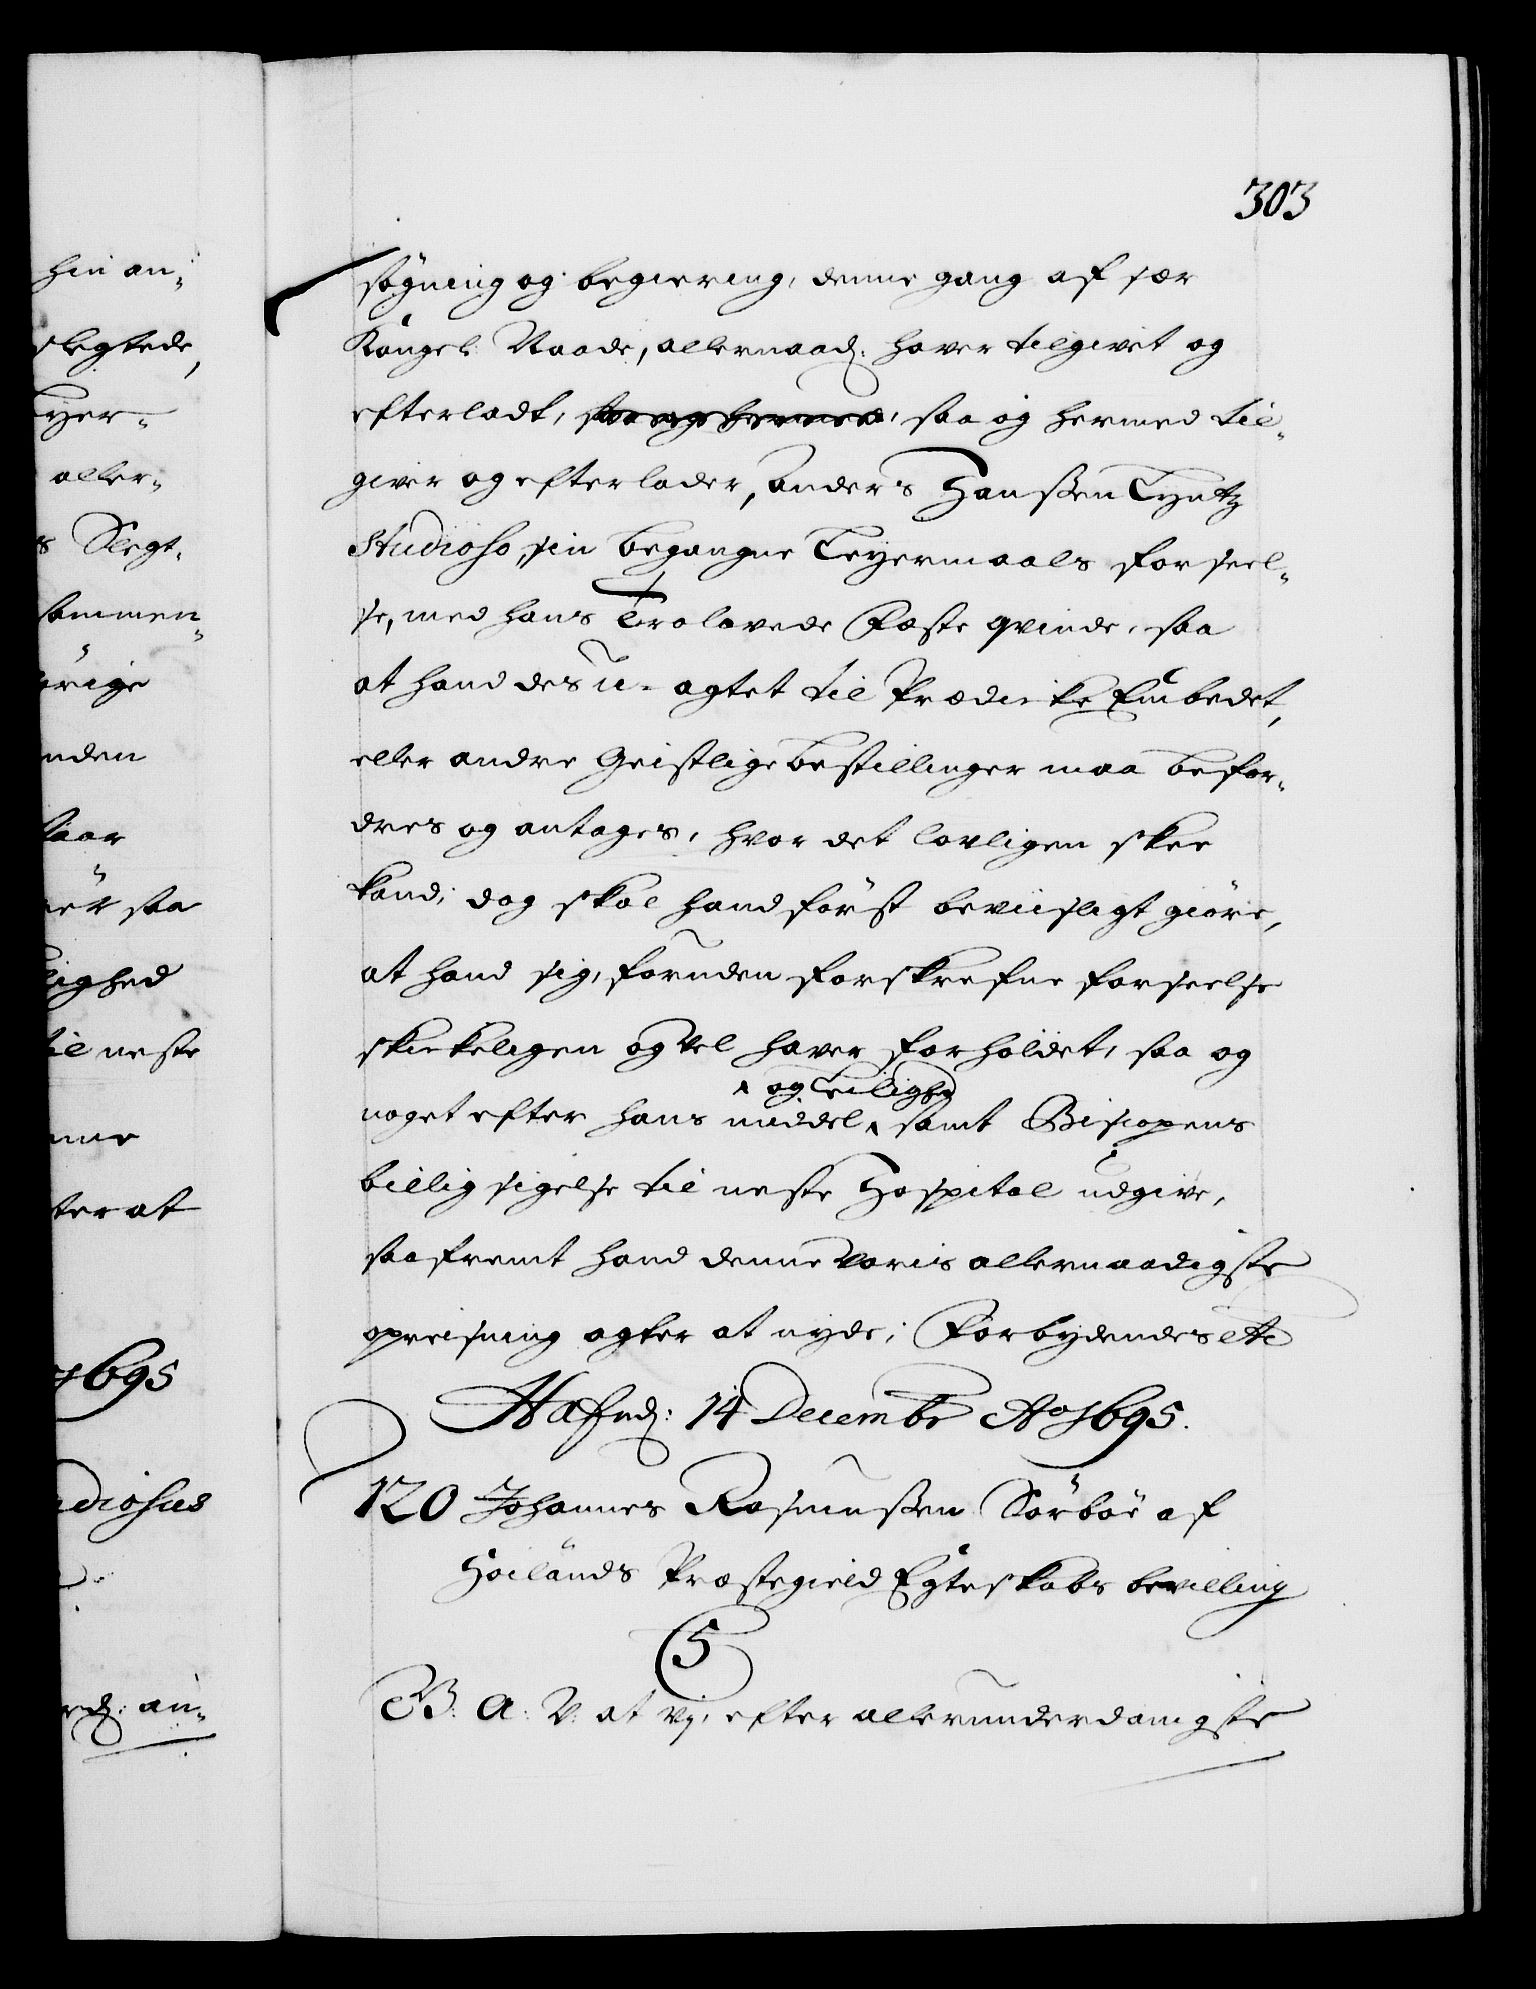 303
hin an-
slegtede,
eyer-
aller-
s Slegt-
sammen-
örige
nden
saar
ër saa
lighed
til neste
nne
ter at
1695
udiosus
rd: an-
søgning og begiering, denne gang af sær
Kongel: Naade, allernaad: haver tilgivet og
efterladt, saa og hermed, saa og hermed til-
giver og efterlader, Anders Hanssen Tyntz
Studioso, sin begangne Leyermaals forseel-
se, med hans Trolovede Fæste qvinde, saa
at hand des u-agtet til Prædicke Embedet,
eller andre Geistlige bestillinger maa befor-
dres og antages, hvor det lovligen skee
kand; dog skal hand först beviisligt giöre,
at hand sig, foruden forskrefne forseelse
skickeligen og vel haver forholdet, saa og
noget efter hans middel ^ og Leilighed samt Biscopens
billig sigelse til neste Hospital udgive,
saafremt hand denne Voris allernaadigste
opreisning agter at nyde; Forbydendes etc
Hafnd: 14 Decembr Ao 1695.
120 Johannes Rasmussen Sörböe af
Höilands Præstegield Egteskabs bevilling
5
G. B. A: V: at Vj, efter allerunderdanigste